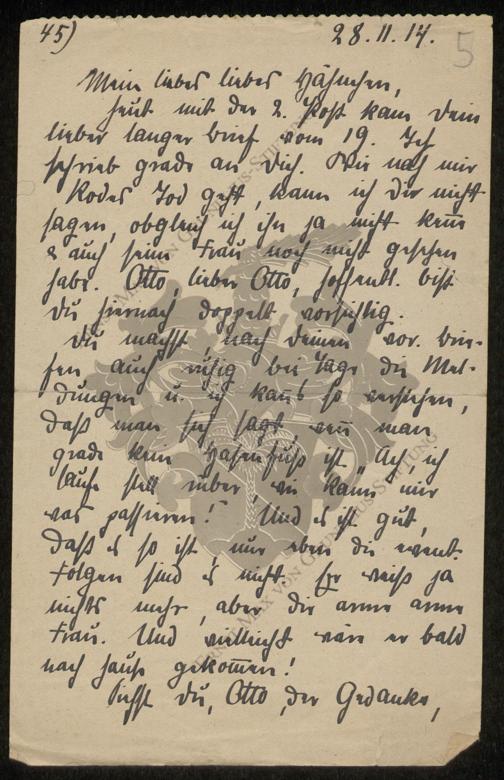 45) 28.11.14. 5
Mein liebes liebes Hähnchen,
heut mit der 2. Post kam Dein
lieber langer Brief vom 19. Ich
schrieb grade an Dich. Wie nah mir
Rodes Tod geht, kann ich Dir nicht
sagen, obgleich ich ihn ja nicht kenne
& auch seine Frau noch nicht gesehen
habe. Otto, lieber Otto, hoffentl. bist
Du hiernach doppelt vorsichtig.
Du machst nach Deinen vor. Brie-
fen auch ruhig bei Tage die Mel-
dungen u. ich kanns so verstehen,
daß man sich sagt, wenn man
grade kein Hasenfuß ist „Ach, ich
laufe schnell rüber, wie kann mir
was passieren!" Und es ist gut,
daß es so ist, nur eben die event.
Folgen sind es nicht. Er weiß ja
nichts mehr, aber die arme arme
Frau. Und vielleicht wäre er bald
nach Hause gekommen!
Siehst Du, Otto, der Gedanke,